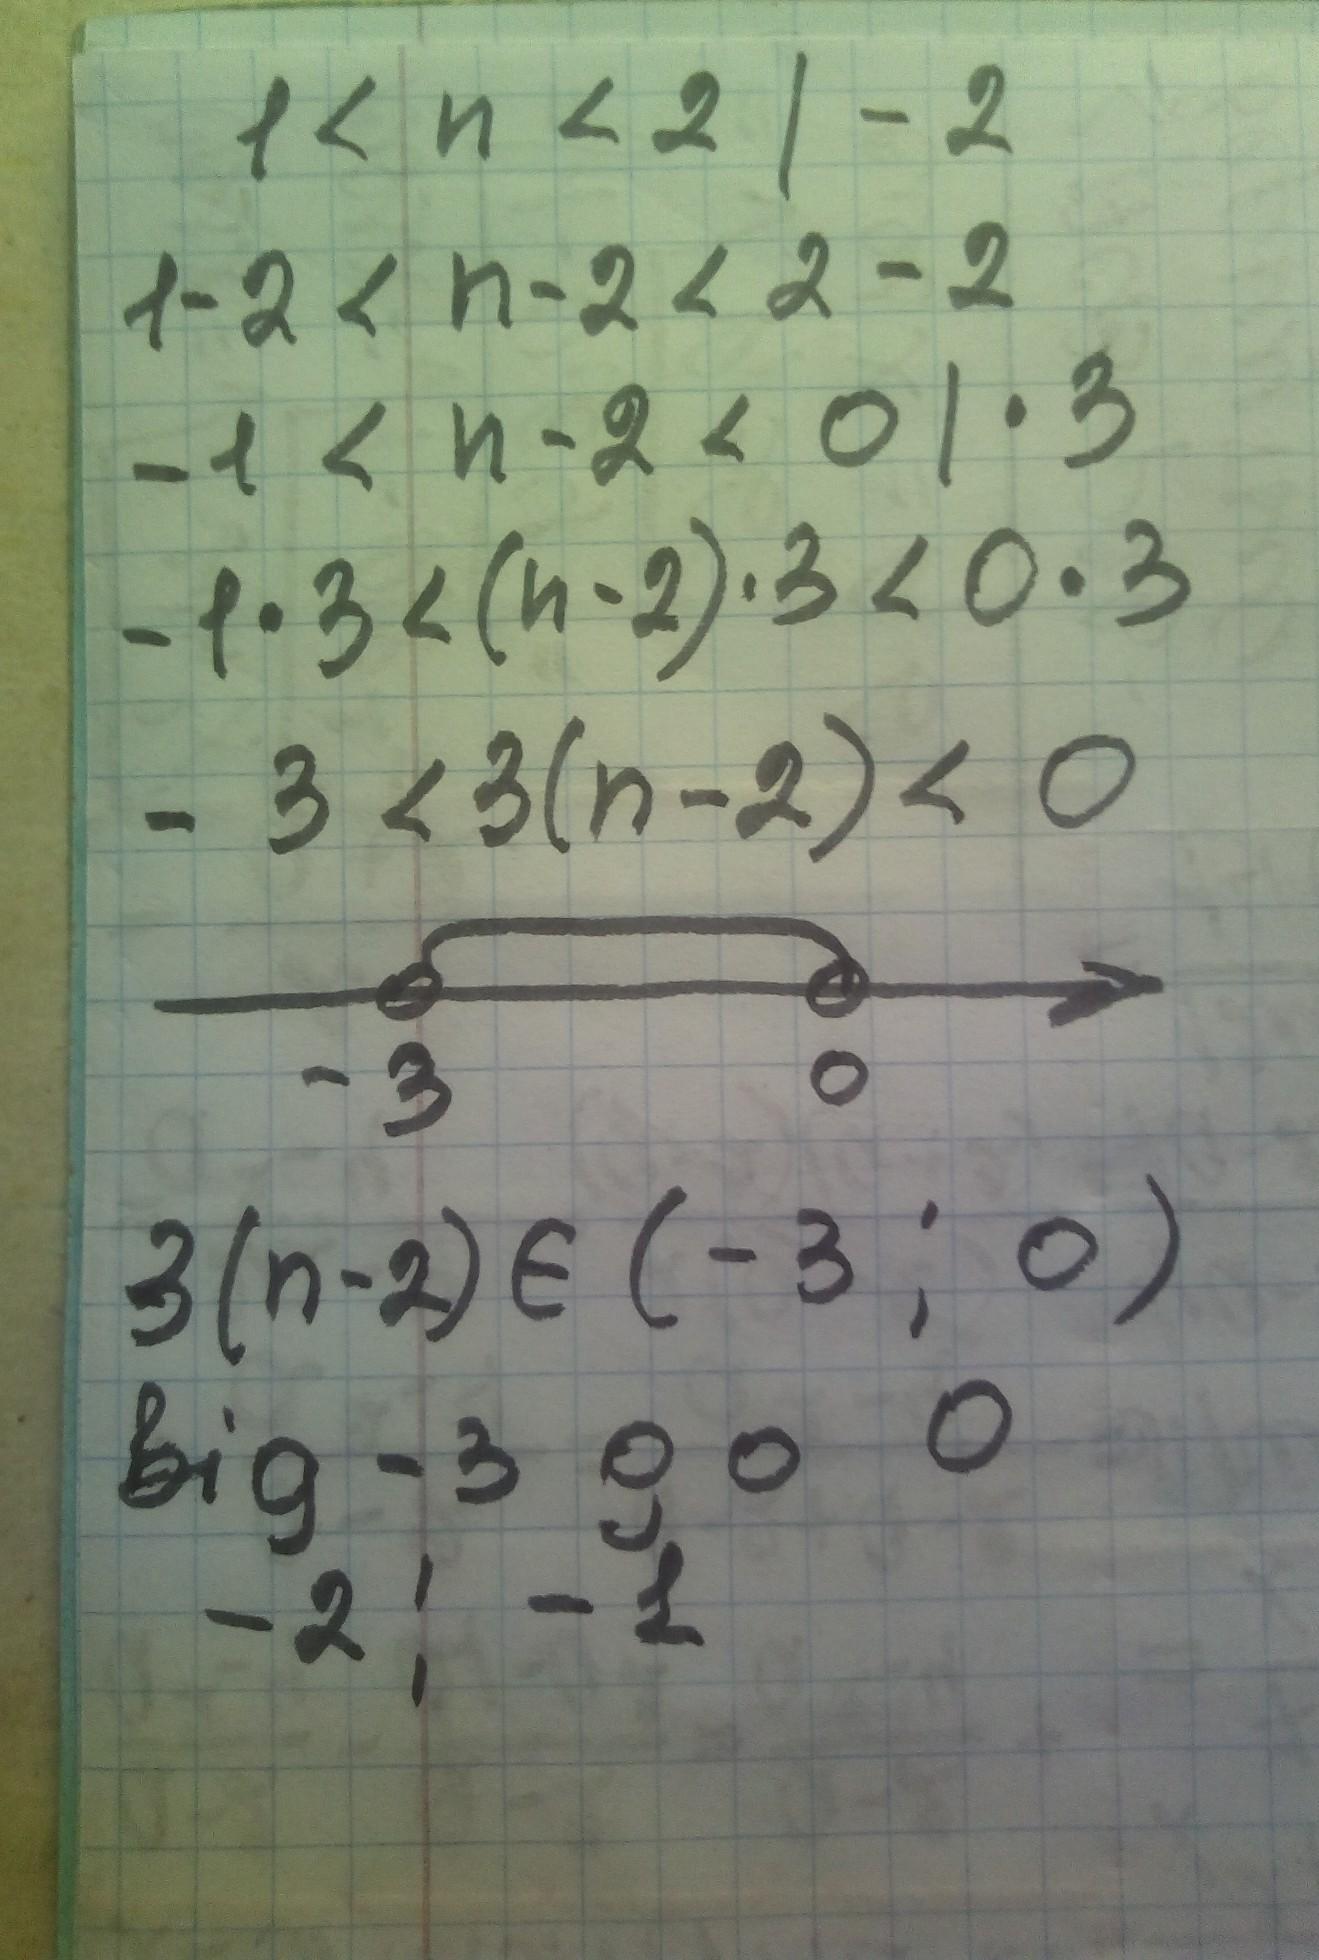 1 < n < 2 | - 2
1 - 2 < n - 2 < 2 - 2
- 1 < n - 2 < 0 | · 3
- 1 · 3 < (n - 2) · 3 < 0 · 3
- 3 < 3(n - 2) < 0
- 3 0
3(n - 2) ∈ (- 3 ; 0)
від - 3 до 0
- 2 ; - 1